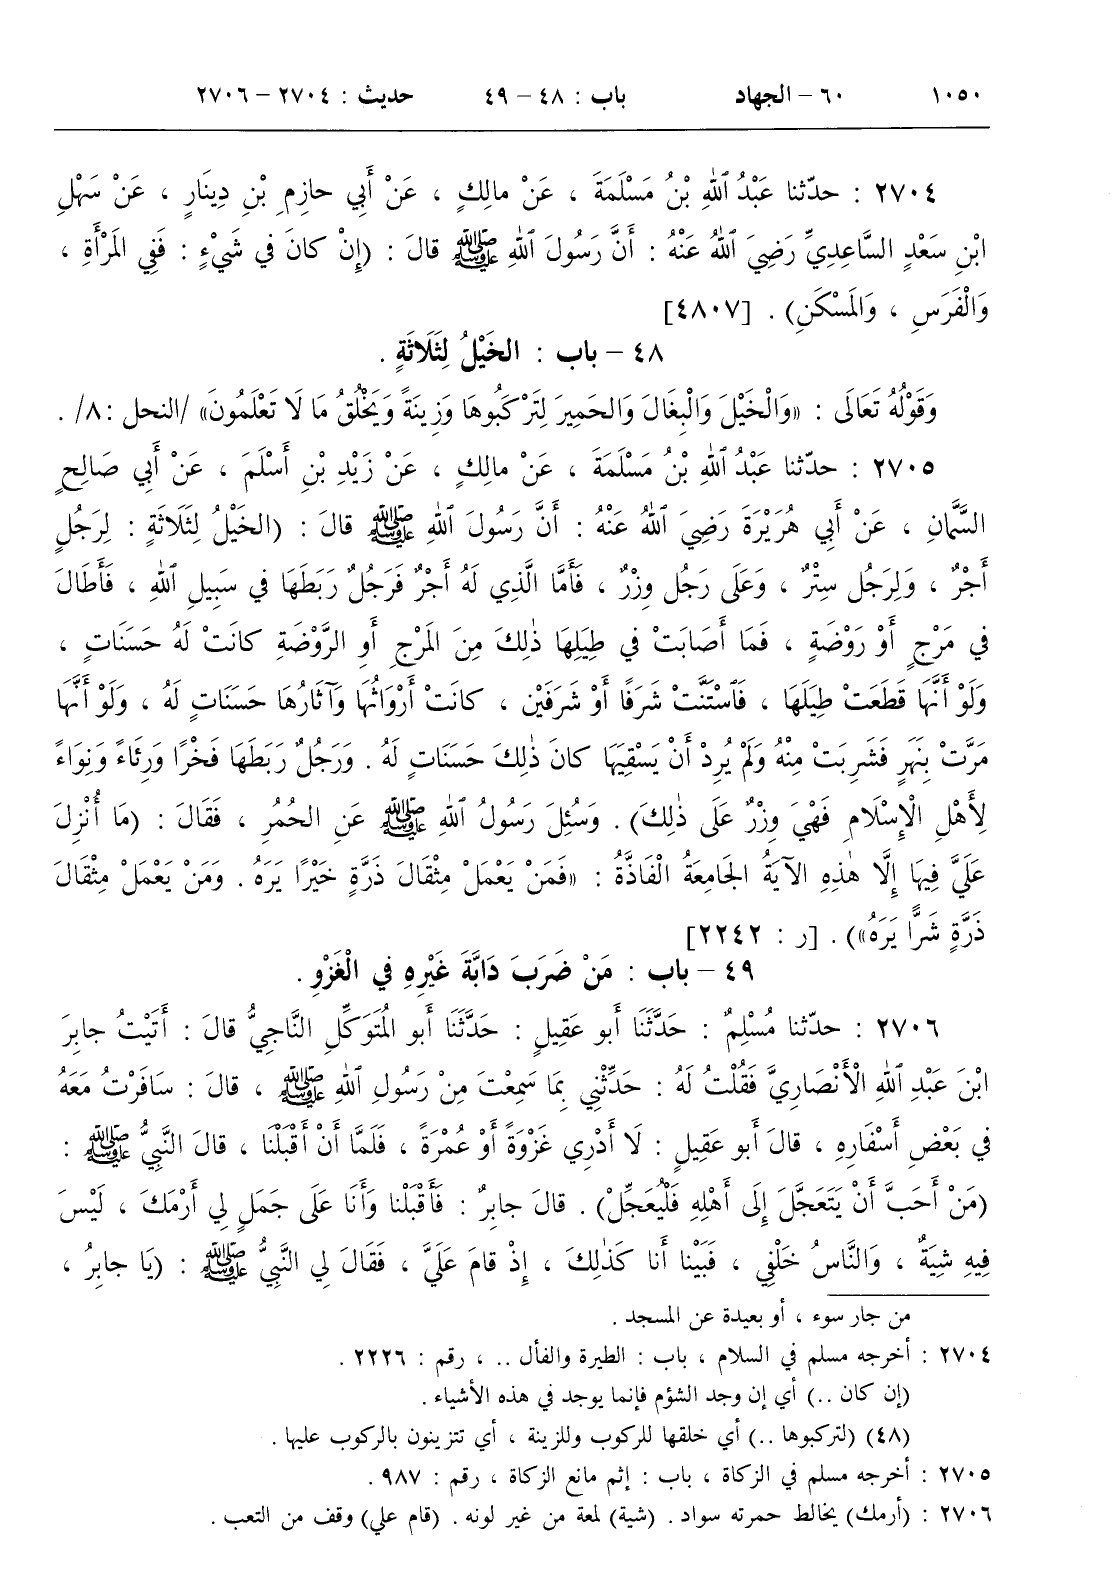 ١٠٥٠ ٦٠ – الجهاد باب : ٤٨ – ٤٩ حديث : ٢٧٠٤ – ٢٧٠٦
٢٧٠٤ : حدّثنا عَبْدُ ٱللهِ بْنُ مَسْلَمَةَ ، عَنْ مالِكٍ ، عَنْ أَبِي حازِمِ بْنِ دِينَارٍ ، عَنْ سَهْلِ
ابْنِ سَعْدٍ السَّاعِدِيِّ رَضِيَ ٱللهُ عَنْهُ : أَنَّ رَسُولَ ٱللهِ ﷺ قالَ : (إِنْ كانَ في شَيْءٍ : فَفِي المَرْأَةِ ،
وَالْفَرَسِ ، وَالمَسْكَنِ) . [٤٨٠٧]
٤٨ – باب : الخَيْلُ لِثَلَاثَةٍ .
وَقَوْلُهُ تَعَالَى : «وَالْخَيْلَ وَالْبِغَالَ وَالحَمِيرَ لِتَرْكَبُوهَا وَزِينَةً وَيَخْلُقُ مَا لَا تَعْلَمُونَ» /النحل :٨/ .
٢٧٠٥ : حدّثنا عَبْدُ ٱللهِ بْنُ مَسْلَمَةَ ، عَنْ مالِكٍ ، عَنْ زَيْدِ بْنِ أَسْلَمَ ، عَنْ أَبِي صَالِحٍ
السَّمَّانِ ، عَنْ أَبِي هُرَيْرَةَ رَضِيَ ٱللهُ عَنْهُ : أَنَّ رَسُولَ ٱللهِ ﷺ قالَ : (الخَيْلُ لِثَلَاثَةٍ : لِرَجُلٍ
أَجْرٌ ، وَلِرَجُلٍ سِتْرٌ ، وَعَلَى رَجُلٍ وِزْرٌ ، فَأَمَّا الَّذِي لَهُ أَجْرٌ فَرَجُلٌ رَبَطَهَا في سَبِيلِ ٱللهِ ، فَأَطَالَ
في مَرْجٍ أَوْ رَوْضَةٍ ، فَمَا أَصَابَتْ في طِيَلِهَا ذٰلِكَ مِنَ المَرْجِ أَوِ الرَّوْضَةِ كانَتْ لَهُ حَسَنَاتٍ ،
وَلَوْ أَنَّهَا قَطَعَتْ طِيَلَهَا ، فَٱسْتَنَّتْ شَرَفًا أَوْ شَرَفَيْنِ ، كانَتْ أَرْوَاثُهَا وَآثَارُهَا حَسَنَاتٍ لَهُ ، وَلَوْ أَنَّهَا
مَرَّتْ بِنَهَرٍ فَشَرِبَتْ مِنْهُ وَلَمْ يُرِدْ أَنْ يَسْقِيَهَا كانَ ذٰلِكَ حَسَنَاتٍ لَهُ . وَرَجُلٌ رَبَطَهَا فَخْرًا وَرِئَاءً وَنِوَاءً
لِأَهْلِ الْإِسْلَامِ فَهْيَ وِزْرٌ عَلَى ذٰلِكَ) . وَسُئِلَ رَسُولُ ٱللهِ ﷺ عَنِ الحُمُرِ ، فَقَالَ : (مَا أُنْزِلَ
عَلَيَّ فِيهَا إِلَّا هٰذِهِ الآيَةُ الجَامِعَةُ الْفَاذَّةُ : «فَمَنْ يَعْمَلْ مِثْقَالَ ذَرَّةٍ خَيْرًا يَرَهُ . وَمَنْ يَعْمَلْ مِثْقَالَ
ذَرَّةٍ شَرًّا يَرَهُ») . [ر : ٢٢٤٢]
٤٩ – باب : مَنْ ضَرَبَ دَابَّةَ غَيْرِهِ في الْغَزْوِ .
٢٧٠٦ : حدّثنا مُسْلِمٌ : حَدَّثَنَا أَبو عَقِيلٍ : حَدَّثَنَا أَبو المُتَوَكِّلِ النَّاجِيُّ قالَ : أَتَيْتُ جابِرَ
ابْنَ عَبْدِ ٱللهِ الْأَنْصَارِيَّ فَقُلْتُ لَهُ : حَدِّثْنِي بِمَا سَمِعْتَ مِنْ رَسُولِ ٱللهِ ﷺ ، قالَ : سَافَرْتُ مَعَهُ
في بَعْضِ أَسْفَارِهِ ، قالَ أَبو عَقِيلٍ : لَا أَدْرِي غَزْوَةً أَوْ عُمْرَةً ، فَلَمَّا أَنْ أَقْبَلْنَا ، قالَ النَّبِيُّ ﷺ :
(مَنْ أَحَبَّ أَنْ يَتَعَجَّلَ إِلَى أَهْلِهِ فَلْيُعَجِّلْ) . قالَ جابِرٌ : فَأَقْبَلْنَا وَأَنَا عَلَى جَمَلٍ لِي أَرْمَكَ ، لَيْسَ
فِيهِ شِيَةٌ ، وَالنَّاسُ خَلْفِي ، فَبَيْنَا أَنَا كَذٰلِكَ ، إِذْ قامَ عَلَيَّ ، فَقَالَ لِي النَّبِيُّ ﷺ : (يَا جابِرُ ،
من جار سوء ، أو بعيدة عن المسجد .
٢٧٠٤ : أخرجه مسلم في السلام ، باب : الطيرة والفأل .. ، رقم : ٢٢٢٦ .
(إن كان ..) أي إن وجد الشؤم فإنما يوجد في هذه الأشياء .
(٤٨) (لتركبوها ..) أي خلقها للركوب وللزينة ، أي تتزينون بالركوب عليها .
٢٧٠٥ : أخرجه مسلم في الزكاة ، باب : إثم مانع الزكاة ، رقم : ٩٨٧ .
٢٧٠٦ : (أرمك) يخالط حمرته سواد . (شية) لمعة من غير لونه . (قام علي) وقف من التعب .